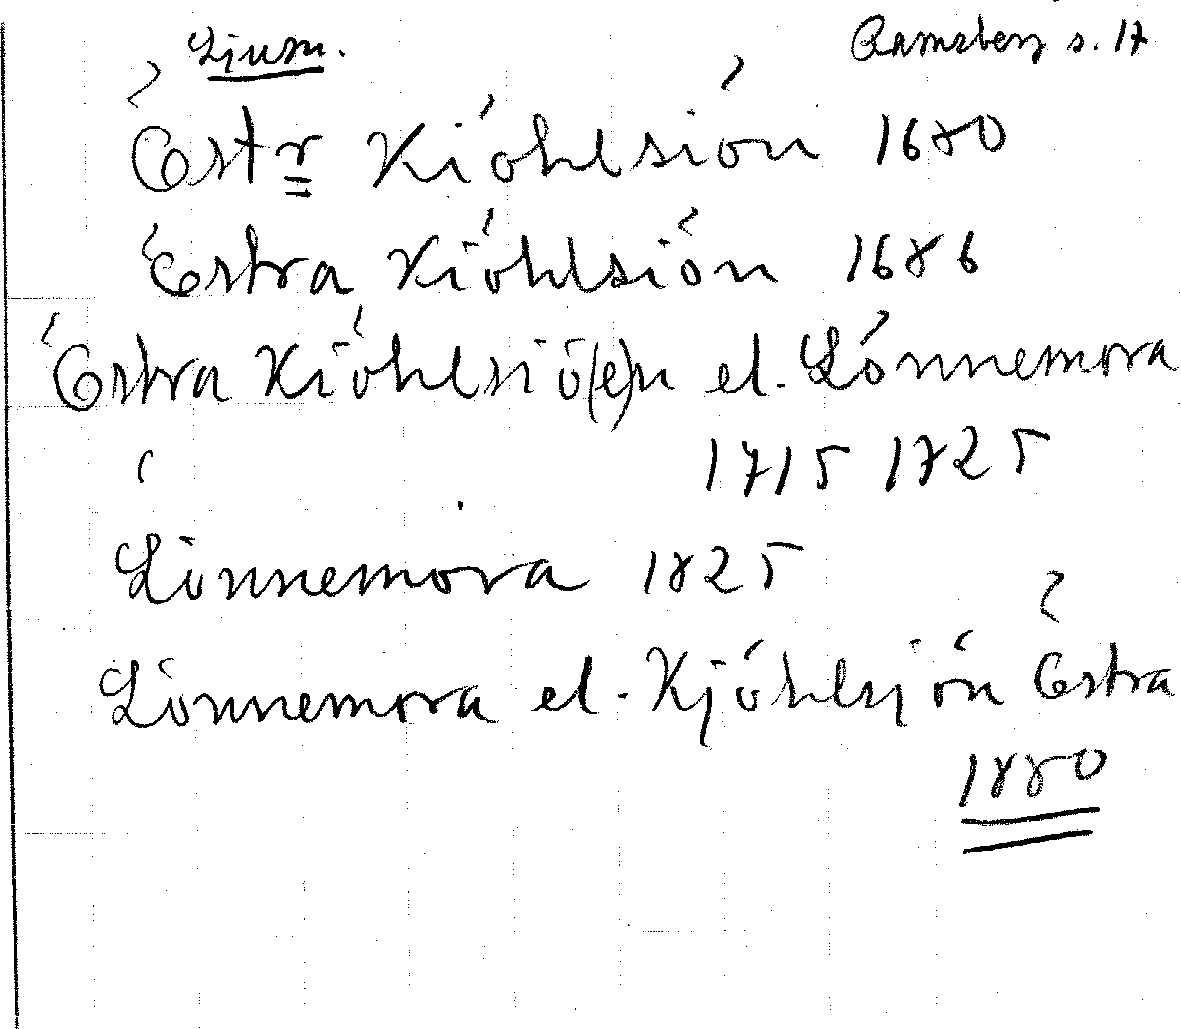 Ljusn. Ramsberg s. 17
Östr Kiöhlsiön 1680
Östra Kiöhlsiön 1686
Östra Kiöhlsiö(e)n el. Lönnemora
1715 1725
Lönnemora 1825
Lönnemora el. Kjöhlsjön Östra
1880